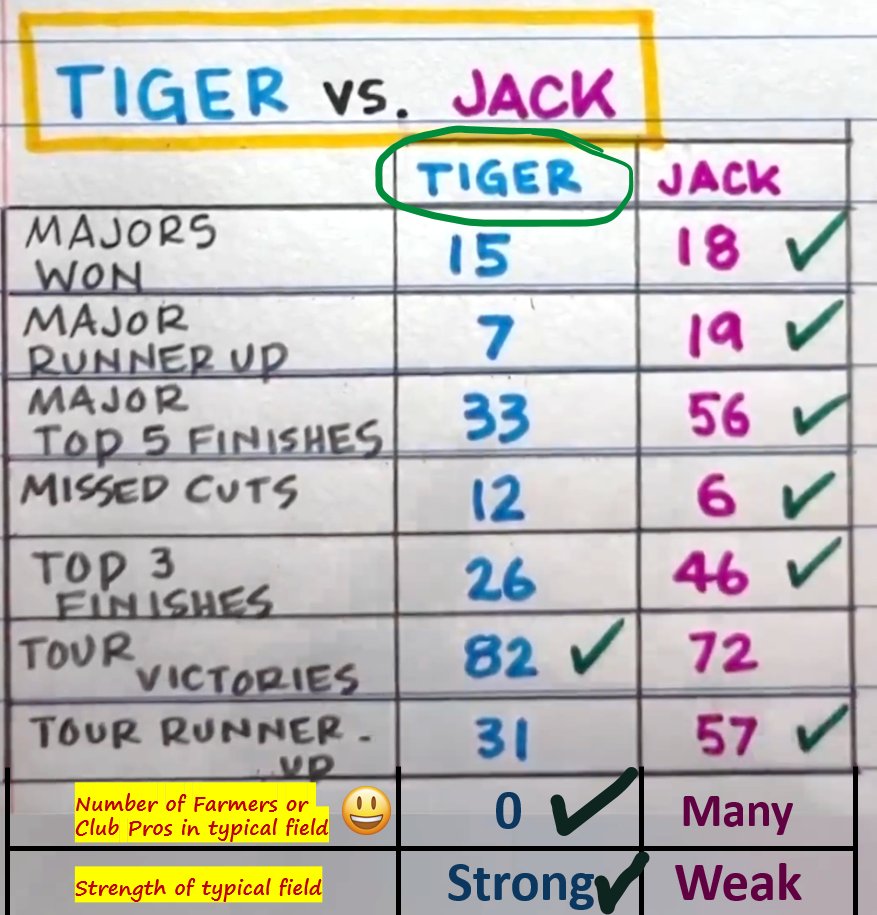 TIGER vs. JACK
TIGER JACK
MAJORS
WON 15 18 ✓
MAJOR
RUNNER UP 7 19 ✓
MAJOR
TOP 5 FINISHES 33 56 ✓
MISSED CUTS 12 6 ✓
TOP 3
FINISHES 26 46 ✓
TOUR
VICTORIES 82 ✓ 72
TOUR RUNNER-
UP 31 57 ✓
Number of Farmers or
Club Pros in typical field 😃 0 ✓ Many
Strength of typical field Strong ✓ Weak